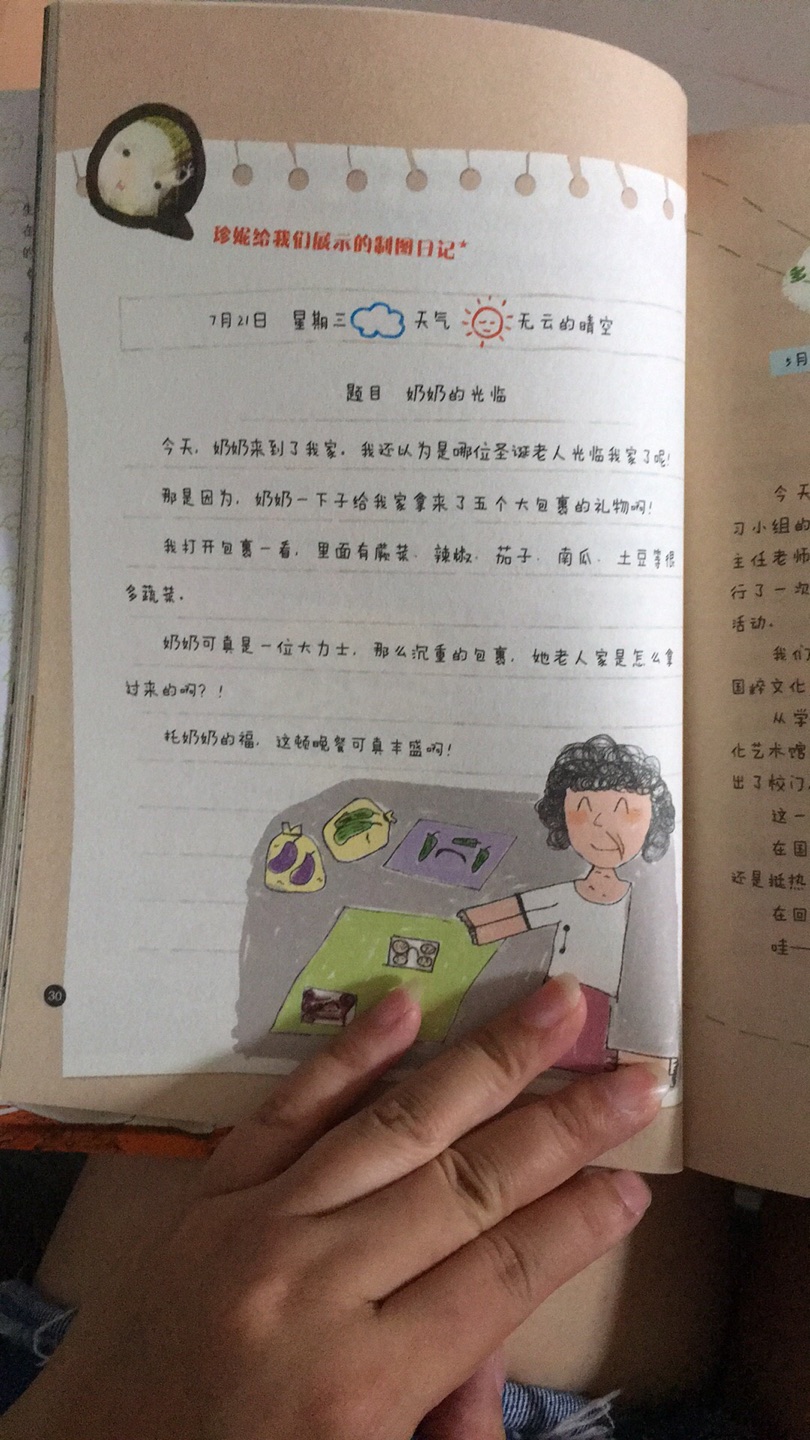 珍妮给我们展示的制图日记*
7月21日 星期三 天气 无云的晴空
题目 奶奶的光临
今天，奶奶来到了我家。我还以为是哪位圣诞老人光临我家了呢！
那是因为，奶奶一下子给我家拿来了五个大包裹的礼物啊！
我打开包裹一看，里面有蕨菜、辣椒、茄子、南瓜、土豆等很
多蔬菜。
奶奶可真是一位大力士，那么沉重的包裹，她老人家是怎么拿
过来的啊？！
托奶奶的福，这顿晚餐可真丰盛啊！
30
5月
今天
习小组的
主任老师
行了一次
活动。
我们
国粹文化
从学
化艺术馆
出了校门
这一
在国
还是挺热
在回
哇—